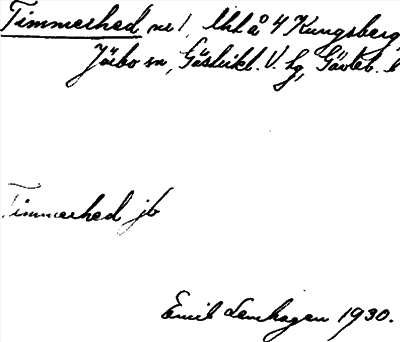 Timmerhed nr 1, lht å 4 Kungsberg,
Järbo sn, Gästrikl. V. hg, Gävleb. l
Timmerhed jb
Emil Lenhagen 1930.